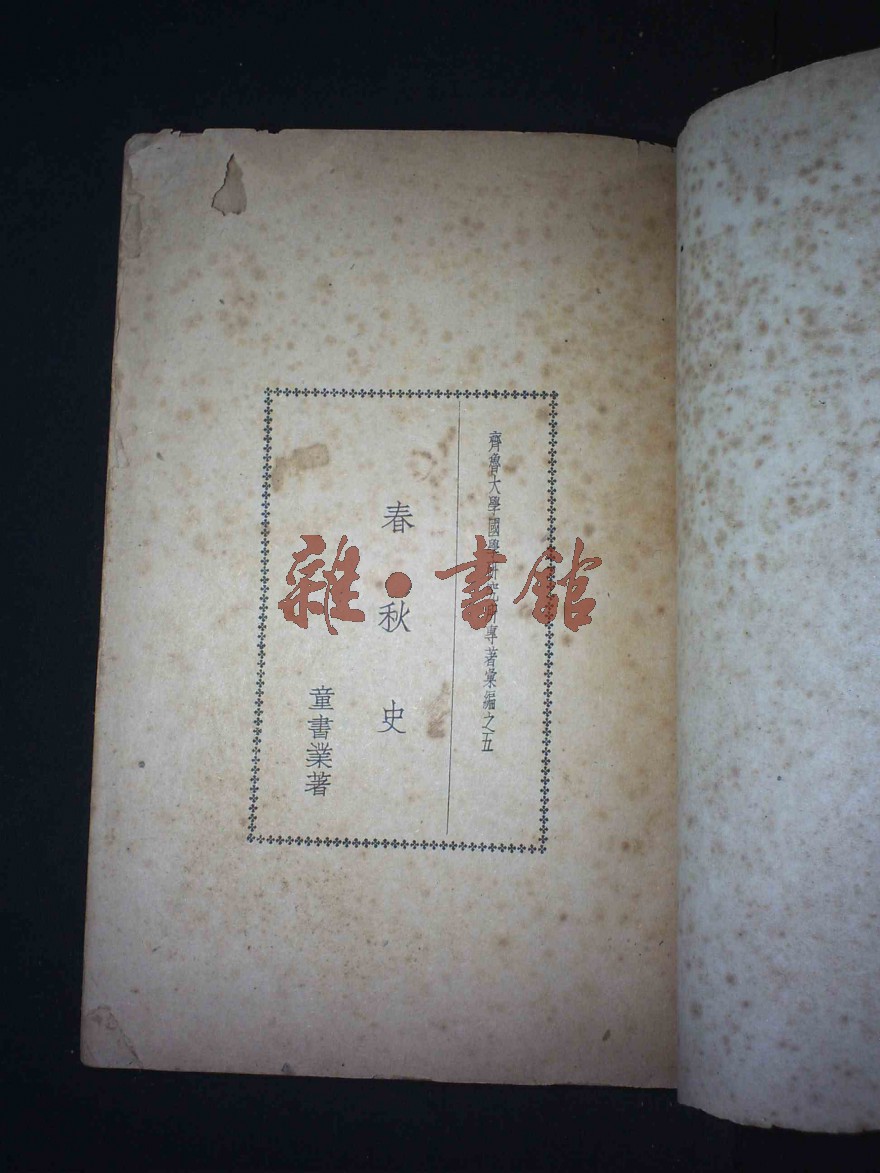 齊魯大學國學研究所專著彙編之五
春秋史
童書業著
雜·書館